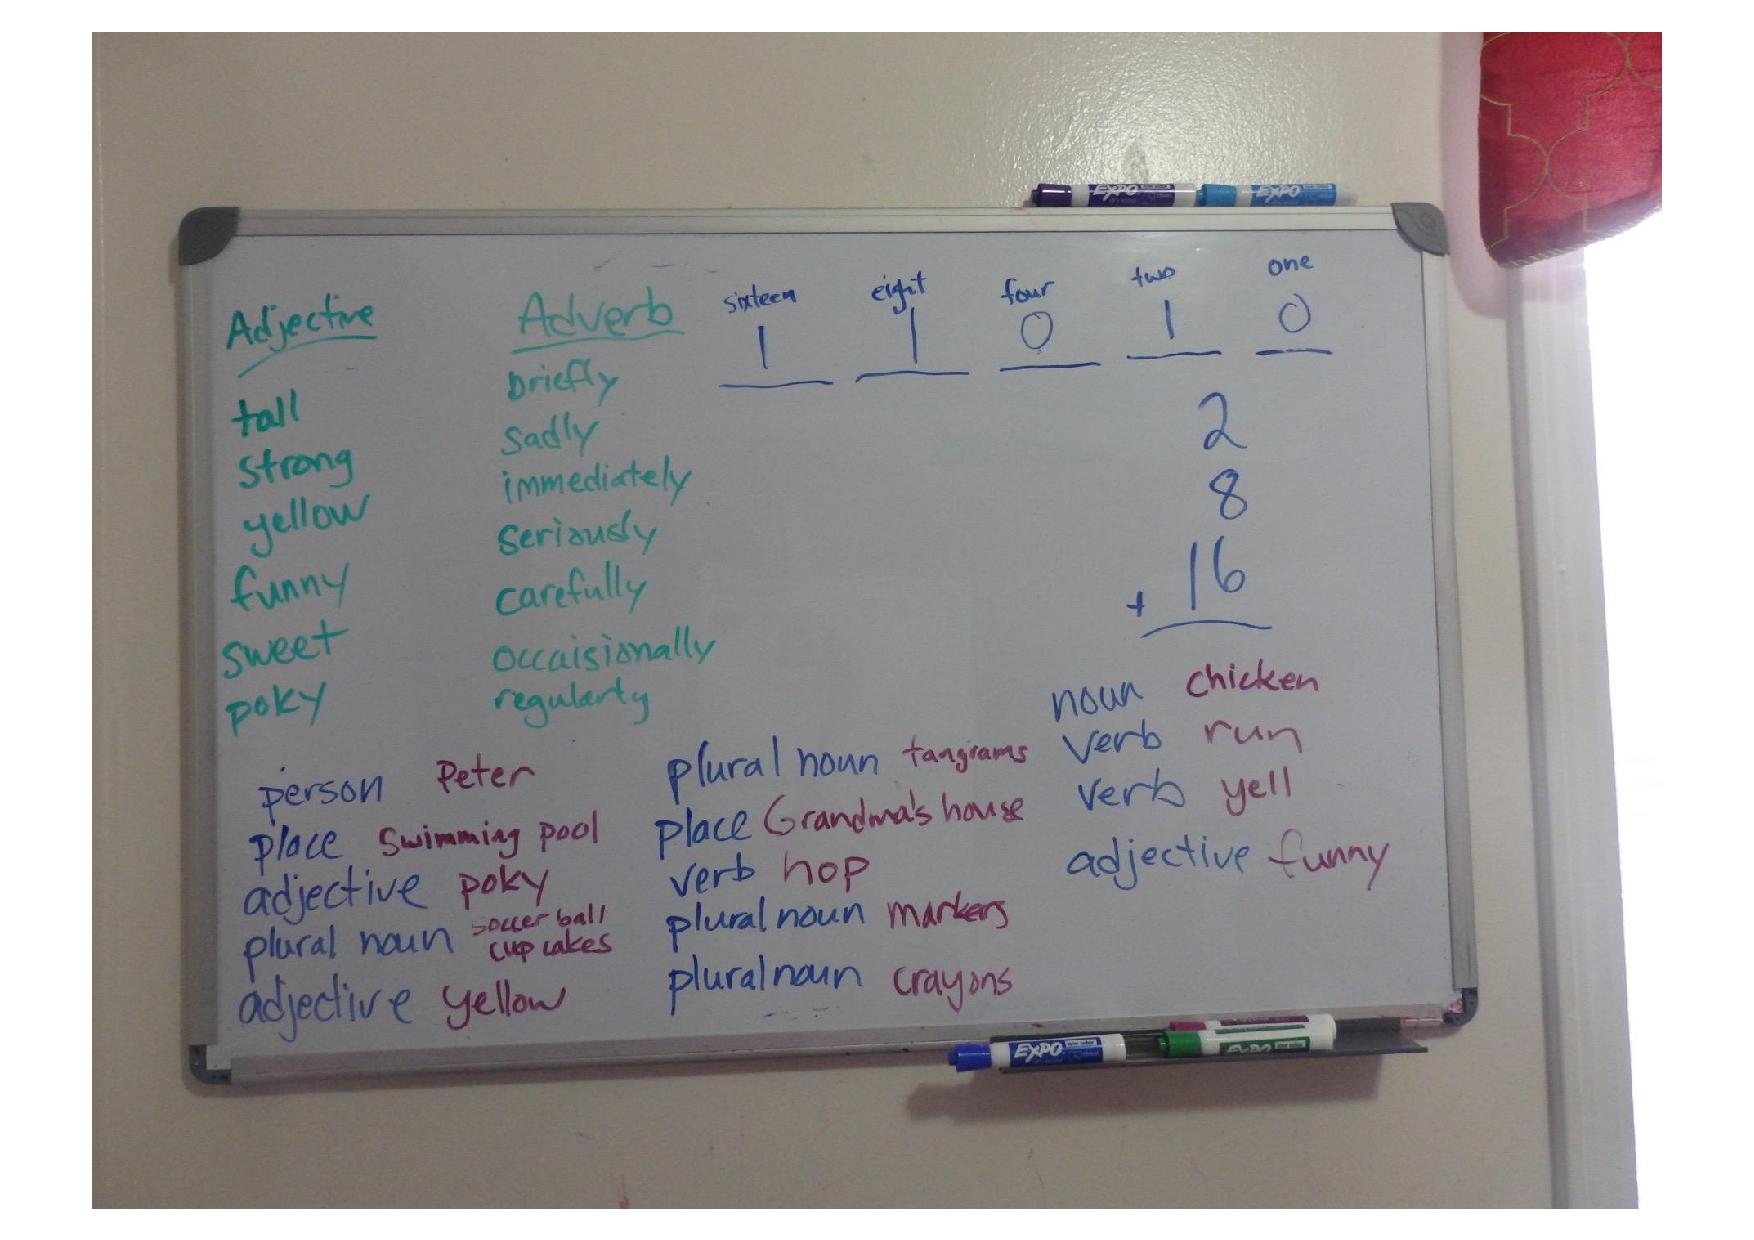 EXPO EXPO
Adjective
tall
strong
yellow
funny
sweet
poky
Adverb
briefly
sadly
immediately
seriously
carefully
occaisionally
regularly
sixteen eight four two one
1 1 0 1 0
2
8
+ 16
person Peter
place Swimming pool
adjective poky
plural noun soccer ball
cupcakes
adjective yellow
plural noun tangrams
place Grandma's house
verb hop
plural noun markers
plural noun crayons
noun chicken
verb run
verb yell
adjective funny
EXPO EXPO